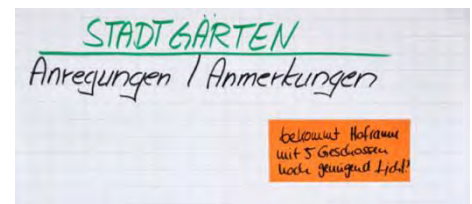 STADTGÄRTEN
Anregungen / Anmerkungen
bekommt Hofraum
mit 5 Geschossen
noch genügend Licht?